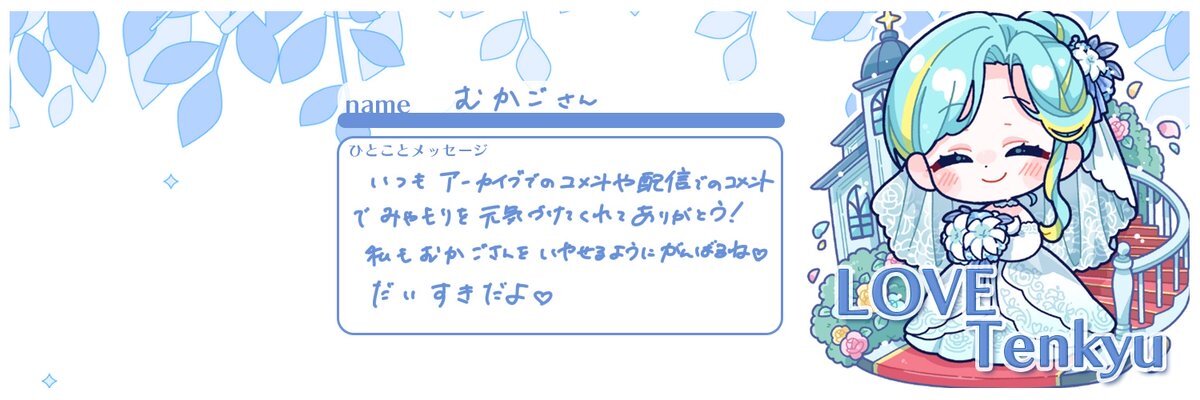 name むかごさん
ひとことメッセージ
いつも アーカイブでのコメントや配信でのコメント
で みやもりを 元気づけてくれて ありがとう!
私も むかごさんを いやせるように がんばるね♡
だいすきだよ♡
LOVE
Tenkyu